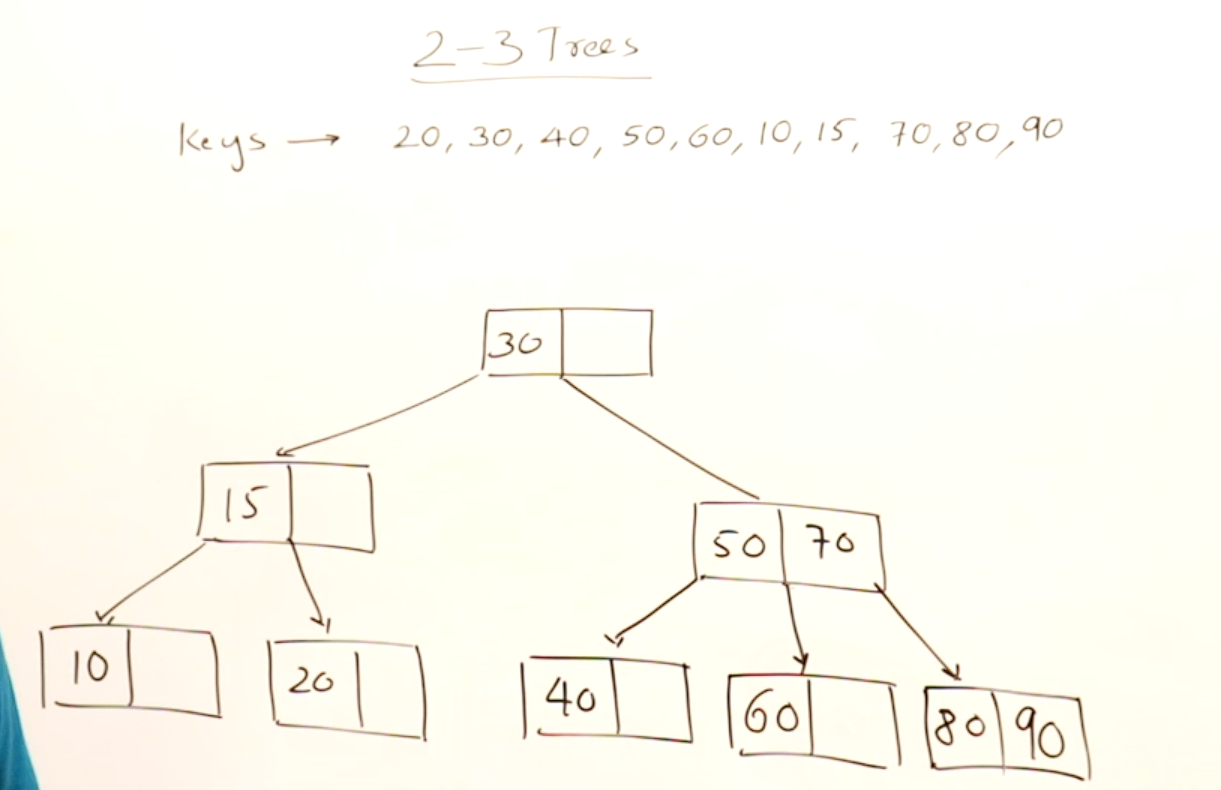 2-3 Trees
Keys → 20, 30, 40, 50, 60, 10, 15, 70, 80, 90
30
15
50 70
10 20 40 60 80 90